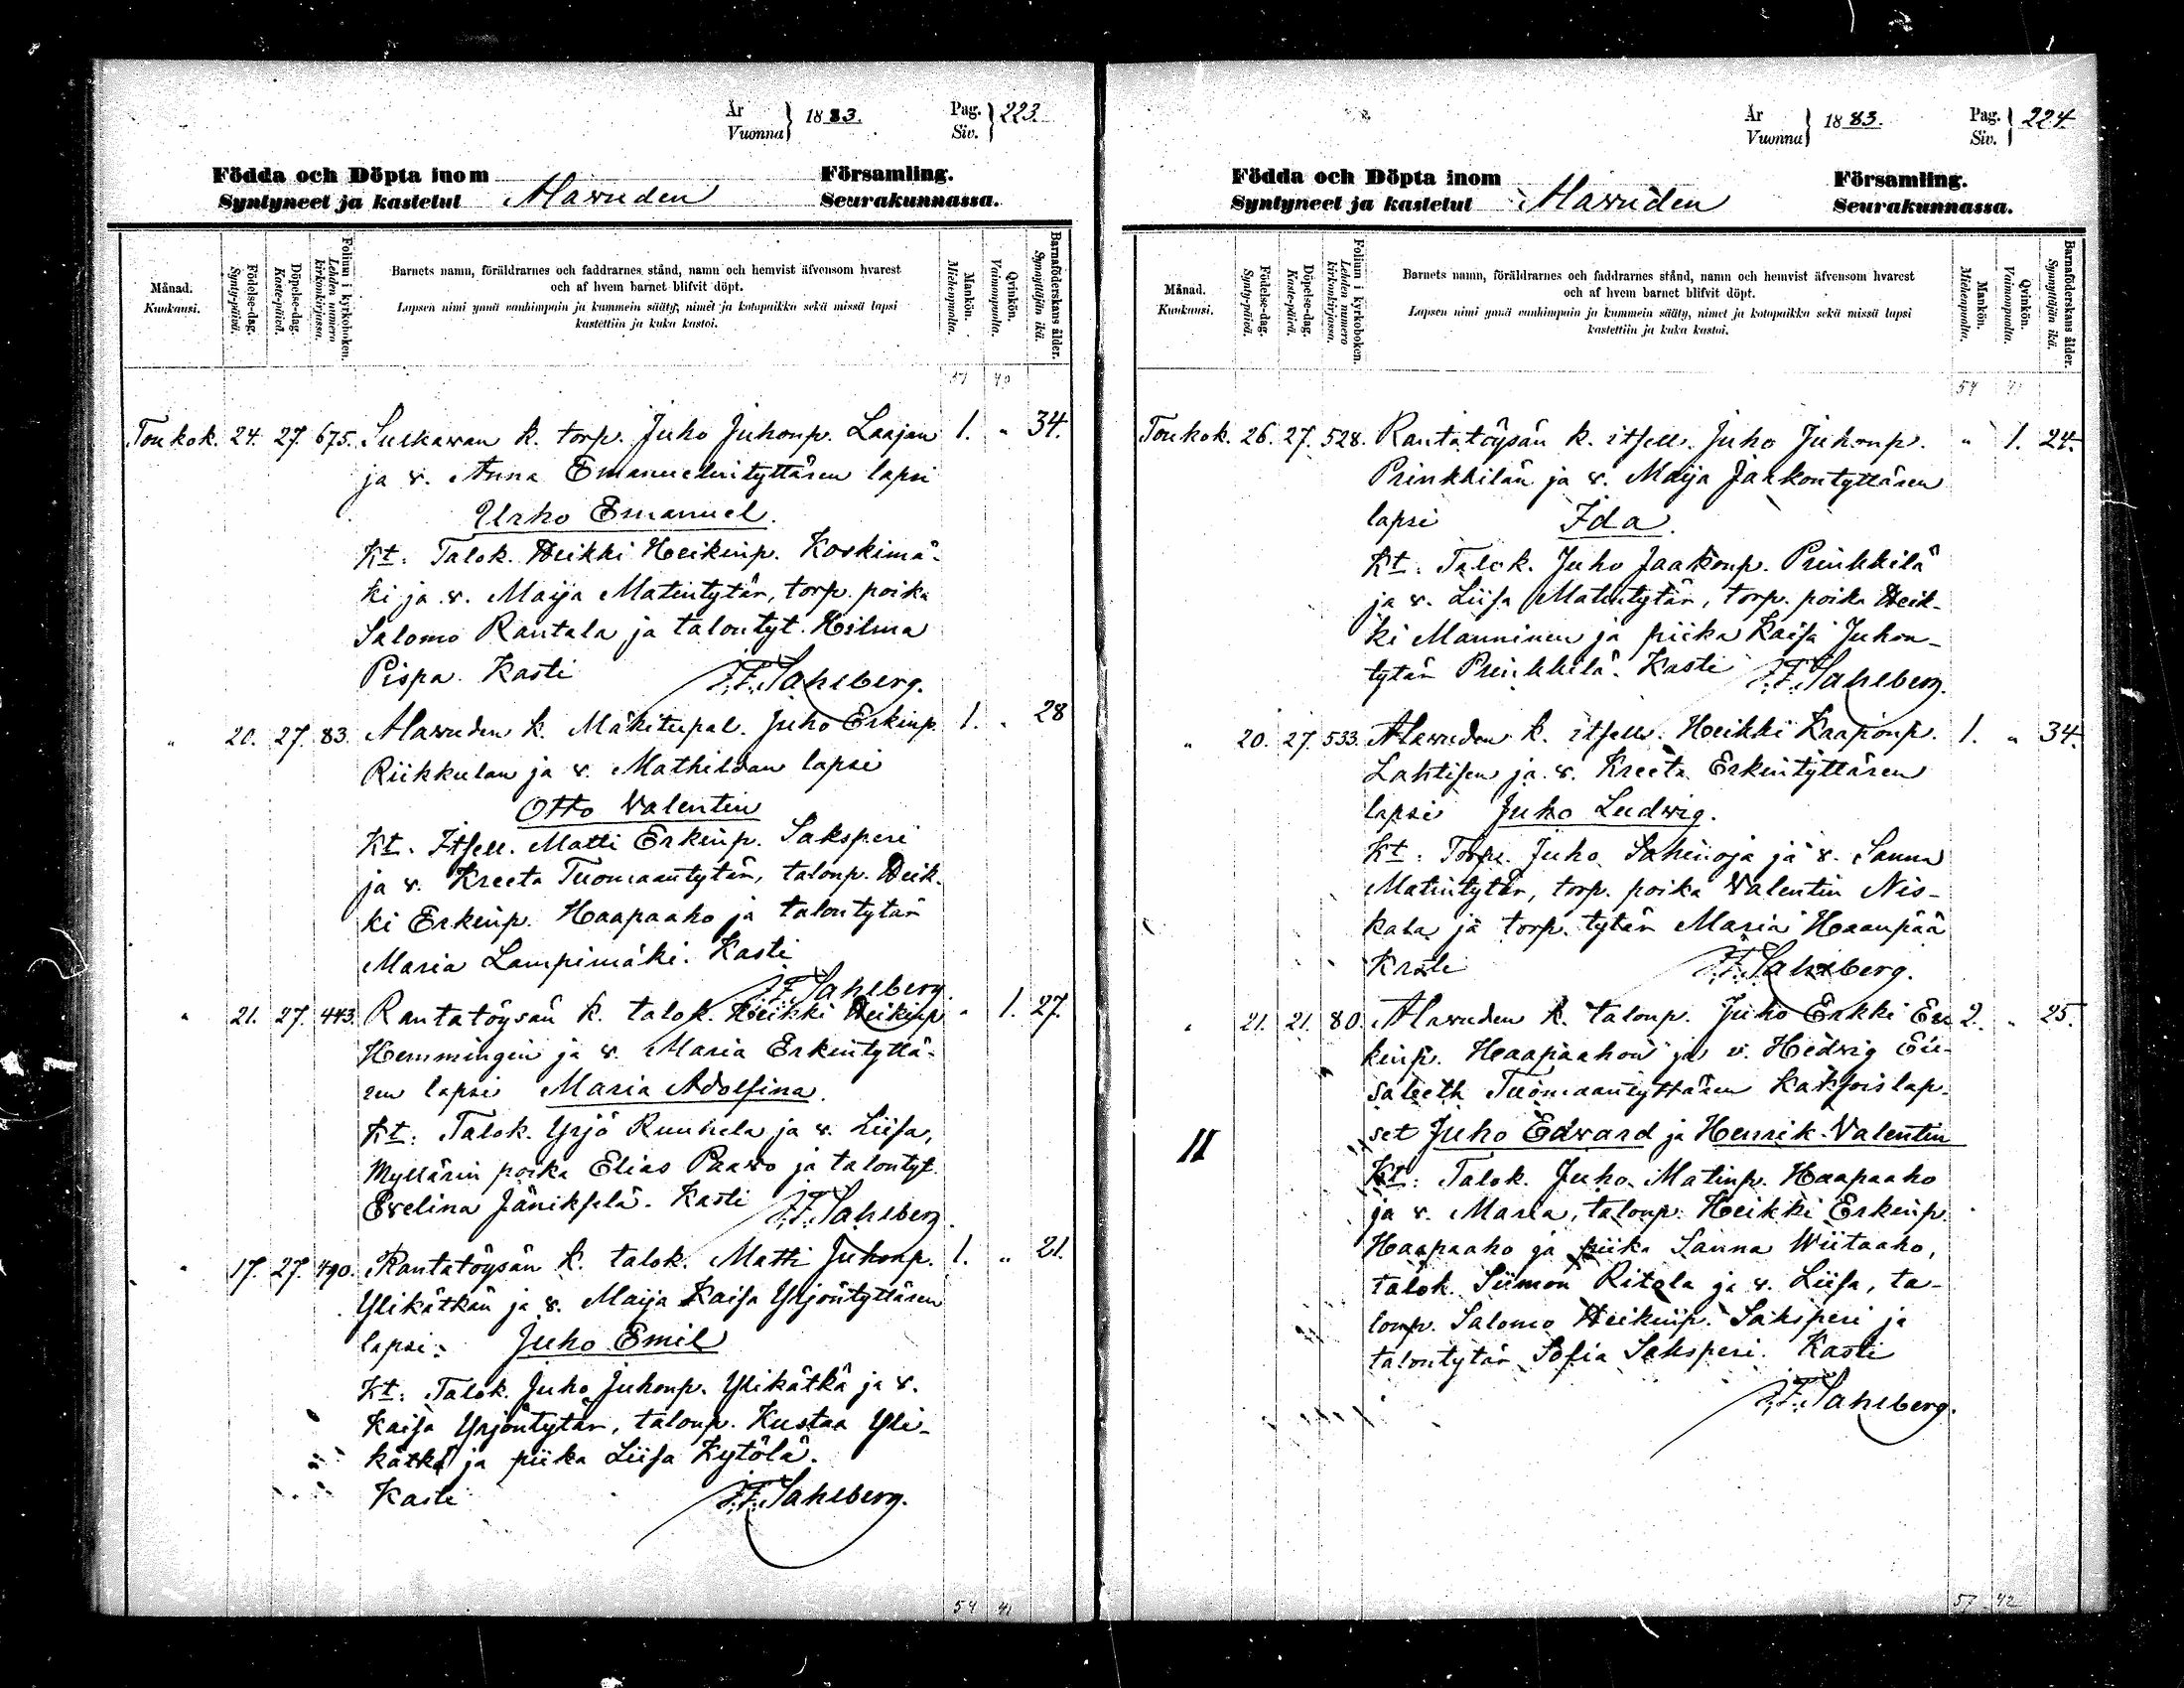 År
Vuonna } 1883. Pag.
Siv. } 223.
Födda och Döpta inom Församling.
Syntyneet ja kastetut Alavuden Seurakunnassa.
Månad.
Kuukausi.
Födelse-dag.
Synty-päivä.
Döpelse-dag.
Kaste-päivä.
Folium i kyrkoboken.
Lehden numero kirkonkirjassa.
Barnets namn, föräldrarnes och faddrarnes stånd, namn och hemvist äfvensom hvarest
och af hvem barnet blifvit döpt.
Lapsen nimi ynnä vanhimpain ja kummein sääty, nimet ja kotopaikka sekä missä lapsi
kastettiin ja kuka kastoi.
Mankön.
Miehenpuolta.
Qvinkön.
Vaimonpuolta.
Barnaföderskans ålder.
Synnyttäjän ikä.
40
Toukok. 24. 27. 675. Sulkavan k. torp. Juho Juhonp. Laajan 1. " 34.
ja v. Anna Emanuelintyttären lapsi
Urho Emanuel.
Kt: Talok. Heikki Heikinp. Koskimä-
ki ja v. Maija Matintytär, torp. poika
Salomo Rantala ja talontyt. Hilma
Pispa. Kasti J. F. Sahlberg.
" 20. 27. 83. Alavuden k. Mäkitupal. Juho Erkinp. 1. " 28
Riikkulan ja v. Mathildan lapsi
Otto Valentin
Kt. Itsell. Matti Erkinp. Saksperi
ja v. Kreeta Tuomaantytär, talonp. Heik-
ki Erkinp. Haapaaho ja talontytär
Maria Lampimäki. Kasti
J. F. Sahlberg.
" 21. 27. 443. Rantatöysän k. talok. Heikki Heikinp " 1. 27.
Hemmingin ja v. Maria Erkintyttä-
ren lapsi Maria Adolfina.
Kt: Talok. Yrjö Ruuhela ja v. Liisa,
Myllärin poika Elias Paavo ja talontyt.
Evelina Jänikselä. Kasti J. F. Sahlberg.
" 17. 27. 490. Rantatöysän k. talok. Matti Juhonp. 1. " 21.
Ylikätkän ja v. Maija Kaisa Yrjöntyttären
lapsi: Juho Emil
Kt: Talok. Juho Juhonp. Ylikätkä ja v.
Kaisa Yrjöntytär, talonp. Kustaa Yli-
kätkä ja piika Liisa Kytölä.
Kasti J. F. Sahlberg.
54 41
År
Vuonna } 1883. Pag.
Siv. } 224
Födda och Döpta inom Församling.
Syntyneet ja kastetut Alavuden Seurakunnassa.
Månad.
Kuukausi.
Födelse-dag.
Synty-päivä.
Döpelse-dag.
Kaste-päivä.
Folium i kyrkoboken.
Lehden numero kirkonkirjassa.
Barnets namn, föräldrarnes och faddrarnes stånd, namn och hemvist äfvensom hvarest
och af hvem barnet blifvit döpt.
Lapsen nimi ynnä vanhimpain ja kummein sääty, nimet ja kotopaikka sekä missä lapsi
kastettiin ja kuka kastoi.
Mankön.
Miehenpuolta.
Qvinkön.
Vaimonpuolta.
Barnaföderskans ålder.
Synnyttäjän ikä.
54 41
Toukok. 26. 27. 528. Rantatöysän k. itsell. Juho Juhonp. " 1. 24.
Prinkkilän ja v. Maija Jaakontyttären
lapsi Ida.
Kt: Talok. Juho Jaakonp. Prinkkilä
ja v. Liisa Matintytär, torp. poika Heik-
ki Manninen ja piika Kaisa Juhon-
tytär Prinkkilä. Kasti J. F. Sahlberg.
" 20. 27. 533. Alavuden k. itsell. Heikki Kaaponp. 1. " 34.
Lahtisen ja v. Kreeta Erkintyttären
lapsi Juho Ludvig.
Kt: Torp. Juho Sahinoja ja v. Sanna
Matintytär, torp. poika Valentin Nis-
kala ja torp. tytär Maria Haanpää
Kasti J. F. Sahlberg.
" 21. 21. 80. Alavuden k. talonp. Juho Erkki Er- 2. " 25.
kinp. Haapaahon ja v. Hedvig Eli-
sabeth Tuomaantyttären kaksoislap-
II set Juho Edvard ja Henrik Valentin
Kt: Talok. Juho Matinp. Haapaaho
ja v. Maria, talonp. Heikki Erkinp.
Haapaaho ja piika Sanna Wiitaaho,
talok. Siimon Ritola ja v. Liisa, ta-
lonp. Salomo Heikinp. Saksperi ja
talontytär Sofia Saksperi. Kasti
J. F. Sahlberg.
57 42